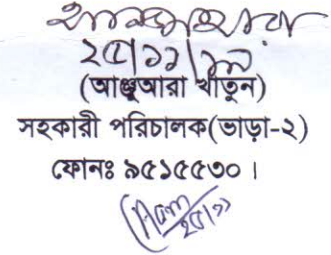 ২৫/১১/১৯
(আঞ্জুআরা খাতুন)
সহকারী পরিচালক(ভাড়া-২)
ফোনঃ ৯৫১৫৫৩০।
২৫/১১